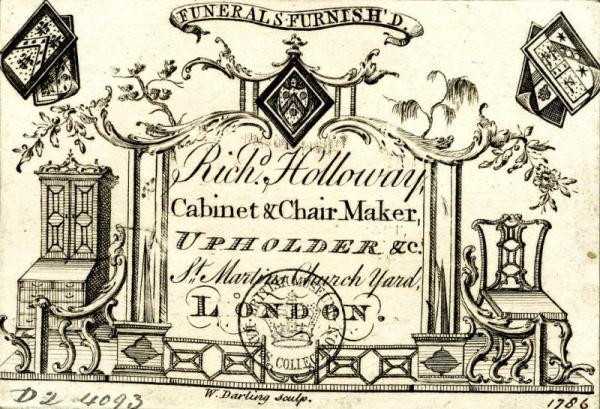 FUNERALS·FURNISH'D
Rich.d Holloway,
Cabinet & Chair Maker,
UPHOLDER &c.
S.t Martins Church Yard,
LONDON.
COLLECTION
D2 4093
W. Darling sculp.
1786